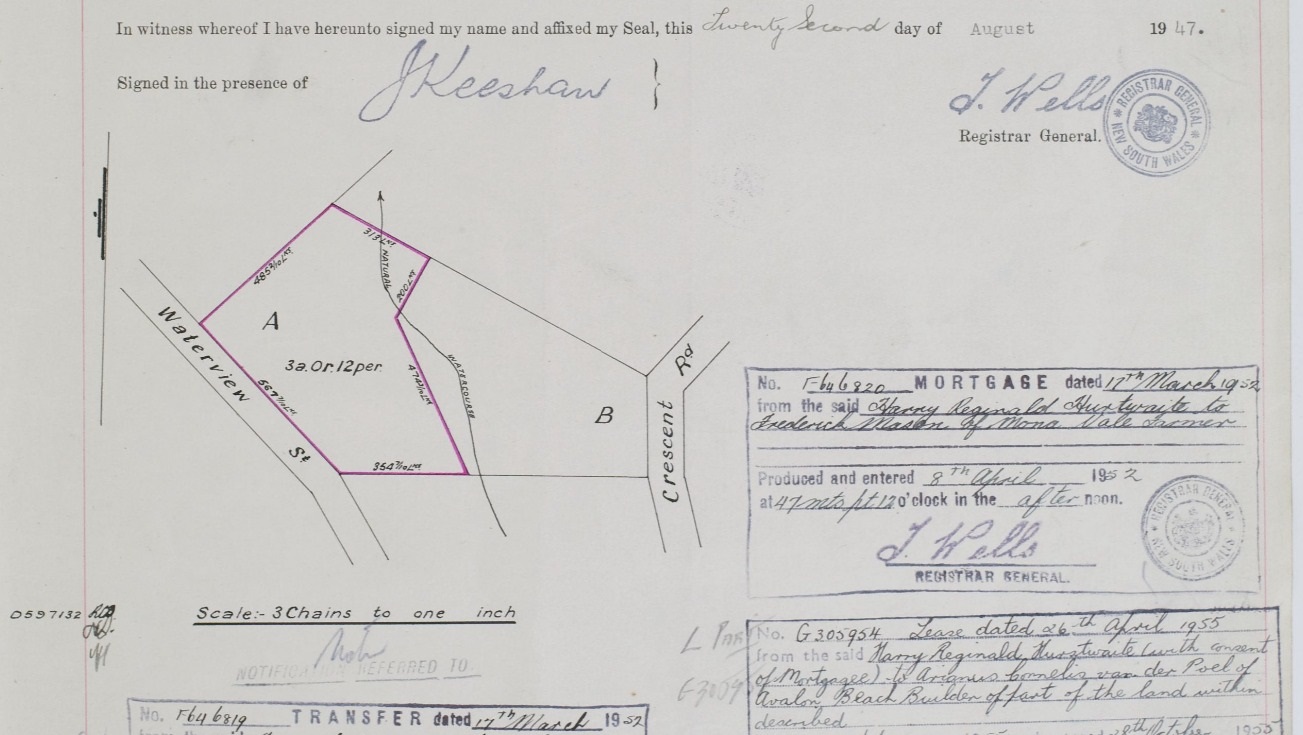 In witness whereof I have hereunto signed my name and affixed my Seal, this Twenty Second day of August 1947.
Signed in the presence of
JKeeshaw
J. Wells
Registrar General.
REGISTRAR GENERAL
NEW SOUTH WALES
313 LKS
485 3/10 LKS
NATURAL
200 LKS
A
3a. 0r. 12per.
Waterview St
567 7/10 LKS
WATERCOURSE
354 7/10 LKS
B
Crescent Rd
Scale:- 3 Chains to one inch
D597132
NOTIFICATION REFERRED TO.
No. F646819 TRANSFER dated 17th March 1952
No. F646820 MORTGAGE dated 17th March 1952
from the said Harry Reginald Hurtwaite to
Frederick Mason of Mona Vale Farmer
Produced and entered 8th April 1952
at 47 mts pt 12 o'clock in the after noon.
J. Wells
REGISTRAR GENERAL.
REGISTRAR GENERAL
NEW SOUTH WALES
No. G305954 Lease dated 26th April 1955
from the said Harry Reginald Hurztwaite (with consent
of Mortgagee) to Arianus Cornelis van der Poel of
Avalon Beach Builder of part of the land within
described
October 1955